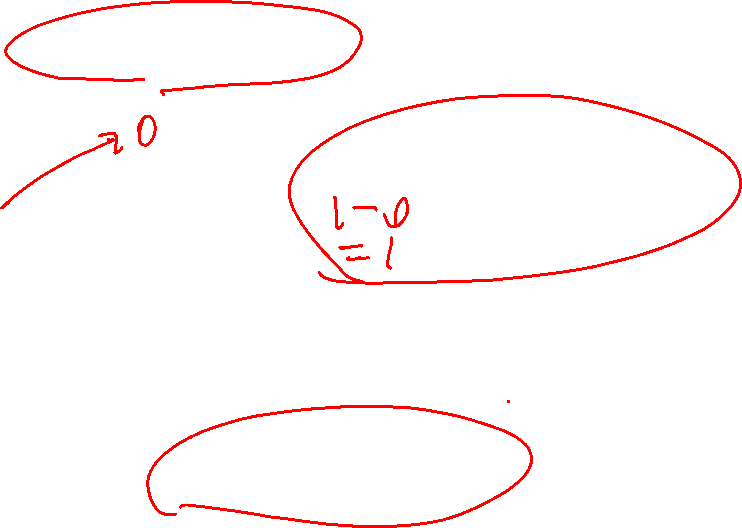 0
1-0
=1